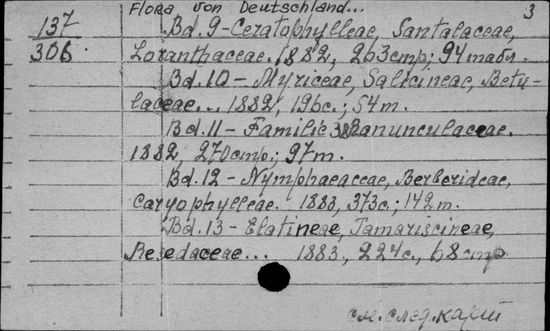 Flora von Deutschland... 3
137 Bd. 9 - Ceratophylleae, Santalaceae,
306 Loranthaceae. 1882, 263стр; 94табл.
Bd. 10 - Myriceae, Salicineae, Betu-
laceae... 1882, 196с.; 54т.
Bd. 11 - Familie Ranunculaceae.
1882, 270стр.; 97т.
Bd. 12 - Nymphaeaceae, Berberideae,
Caryophylleae. 1883, 373с.; 142т.
Bd. 13 - Elatineae, Tamariscineae,
Resedaceae... 1883, 224с., 68стр
см. след. карт